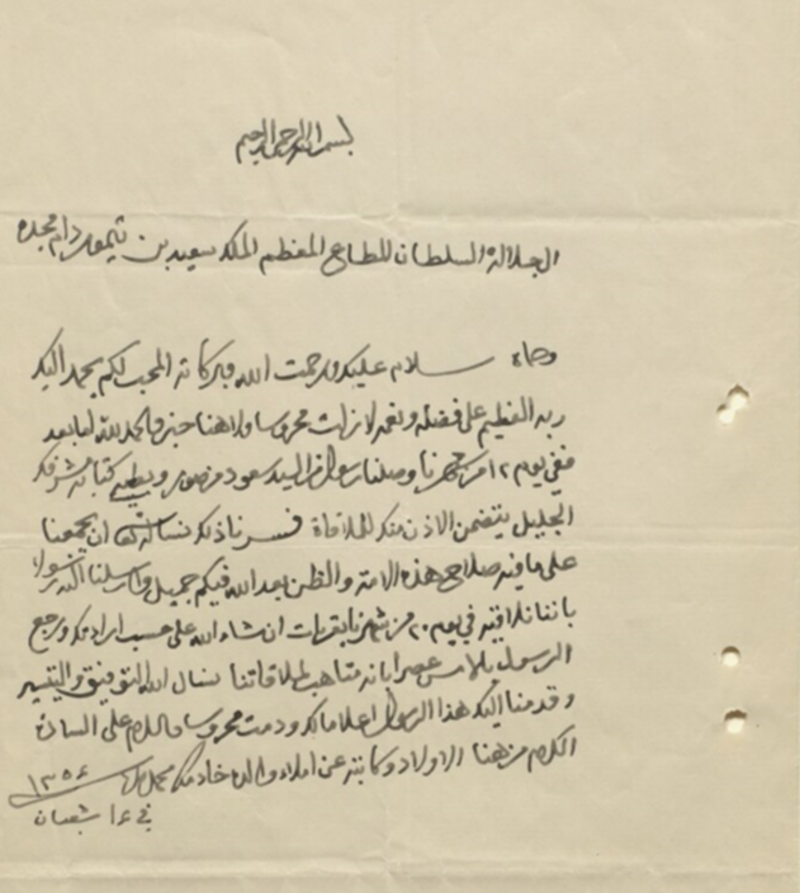 بسم الله الرحمن الرحيم
الجلالة السلطان المطاع المعظم الملك سعيد بن تيمور دام مجده
وعلاه سلام عليك ورحمت الله وبركاته المحب لكم بحمد اليك
ربه العظيم على فضله ونعمه لا زلت محروسا ولا هنا خبر والحمد لله اما بعد
ففي يوم ١٢ من شهرنا وصلنا رسولنا السيد سعود منصور وبطيه كتابه مشرفك
الجليل يتضمن الاذن منك للملاقاة فسرنا ذلك نسال الله ان يجمعنا
على ما فيه صلاح هذه الامة والظن بعد الله فيكم جميل وارسلنا اليه رسولا
باننا نلاقيه في يوم ٢٠ من شهرنا بقريات ان شاء الله على حسب ارادتك ورجع
الرسول بالامس عصرا بانه متاهب لملاقاتنا نسال الله التوفيق والتيسير
وقدمنا اليك هذا الرسول اعلاما لك ودمت محروسا والسلام على السادة
الكرام من هنا الاولاد وكاتبه عن املاء والده خادمك
١٣٥٦
في ١٤ شعبان